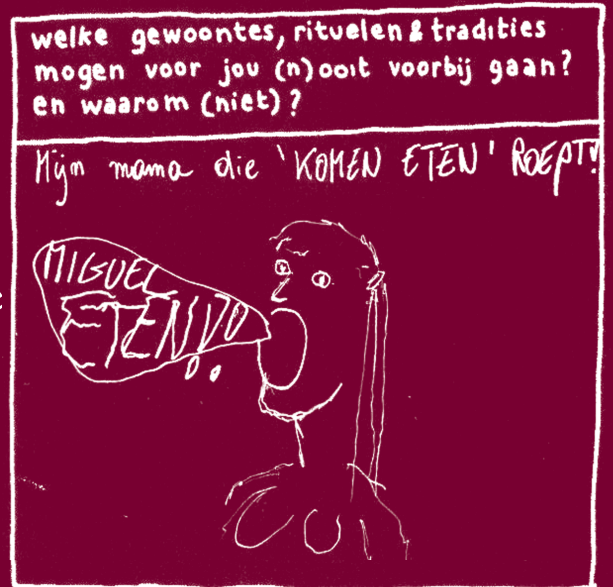 welke gewoontes, rituelen & tradities
mogen voor jou (n)ooit voorbij gaan?
en waarom (niet)?
Mijn mama die 'KOMEN ETEN' ROEPT!
MIGUEL
ETEN!!